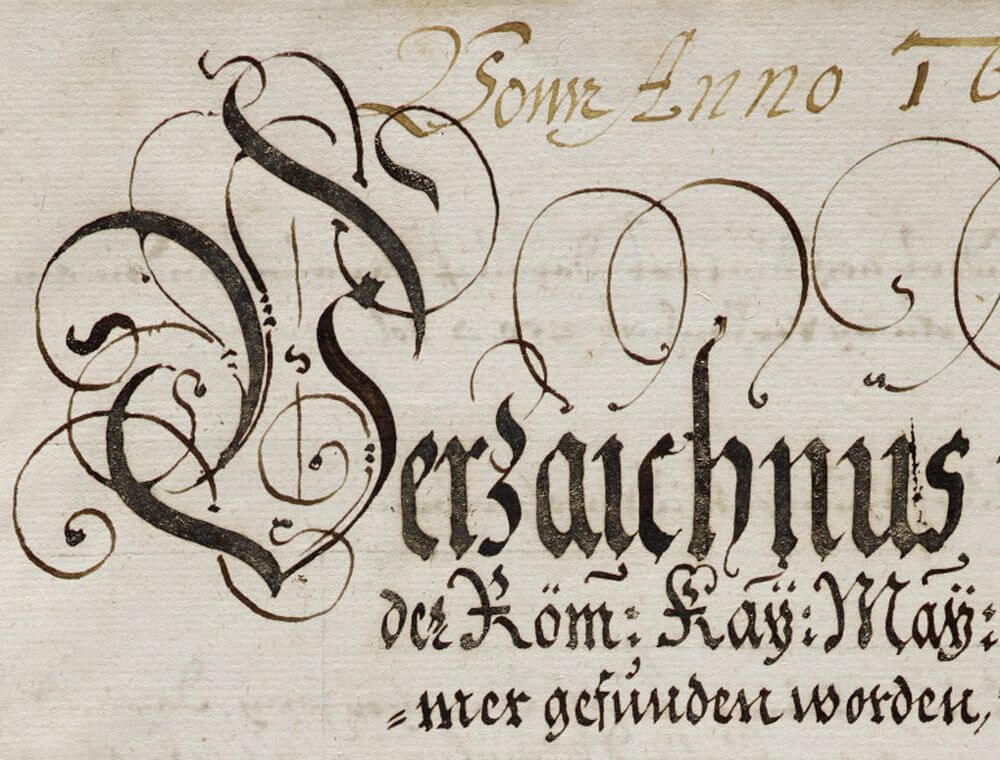 Vom Anno 16
Verzaichnus
der Röm: Kaÿ: Maÿ:
=mer gefunden worden,